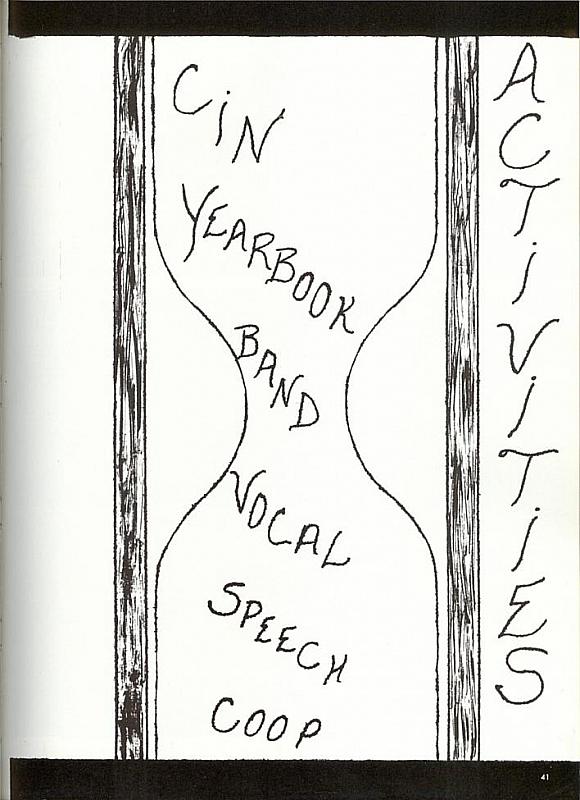 CiN
YEARBOOK
BAND
VOCAL
SPEECH
COOP
ACTiViTiES
41